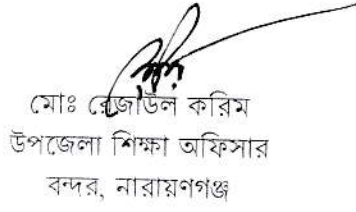 মোঃ রেজাউল করিম
উপজেলা শিক্ষা অফিসার
বন্দর, নারায়ণগঞ্জ